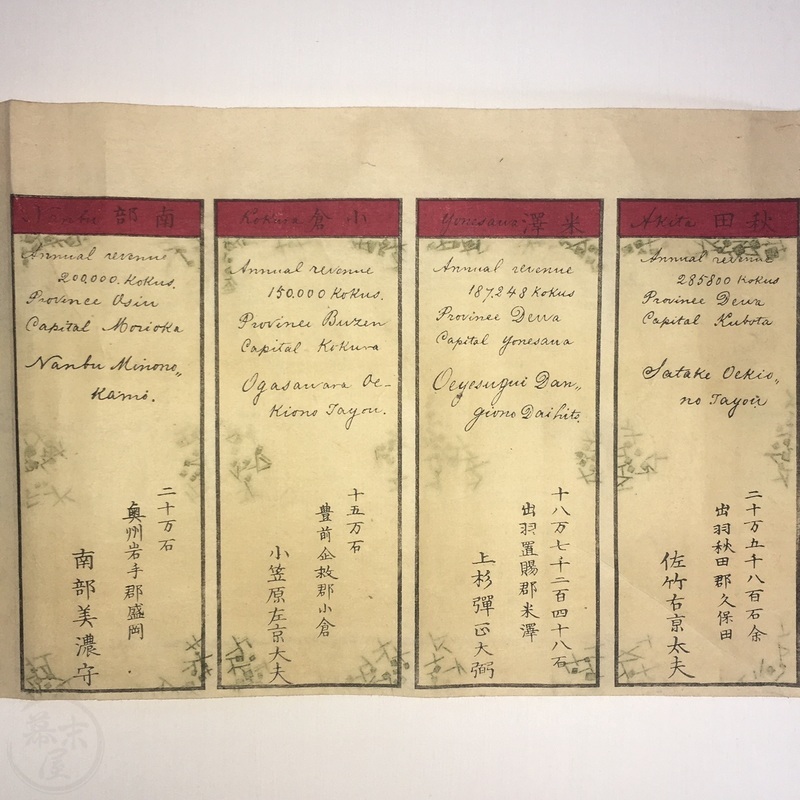 Nanbu 南部
Annual revenue
200,000. Kokus.
Province Osiu
Capital Morioka
Nanbu Minono„
Kami.
二十万石
奥州岩手郡盛岡
南部美濃守
Kokura 小倉
Annual revenue
150,000 Kokus.
Province Buzen
Capital Kokura
Ogasawara Oe-
kiono Tayou.
十五万石
豊前企救郡小倉
小笠原左京大夫
Yonesawa 米澤
Annual revenue
187,248 Kokus
Province Dewa
Capital Yonesawa
Oeyesugui Dan„
giono Daihits.
十八万七千二百四十八石
出羽置賜郡米澤
上杉彈正大弼
Akita 秋田
Annual revenue
285800 Kokus
Province Dewa
Capital Kubota
Satake Oekio„
no Tayou
二十万五千八百石余
出羽秋田郡久保田
佐竹右京太夫
幕末屋